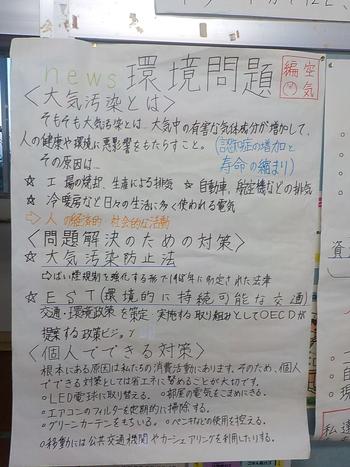 news 環境問題
編 空気
<大気汚染とは>
そもそも大気汚染とは、大気中の有害な気体成分が増加して、
人の健康や環境に悪影響をもたらすこと。
(認知症の増加と
寿命の縮まり)
その原因は…
☆ 工場の焼却、生産による排気 ☆ 自動車、航空機などの排気
☆ 冷暖房など日々の生活に多く使われる電気
⇒ 人の経済的・社会的な活動
<問題解決のための対策>
☆ 大気汚染防止法
⇒ばい煙規制を強化する形で1968年に制定された法律
☆ EST(環境的に持続可能な交通)
交通・環境政策を策定・実施する取り組みとしてOECDが
提案する政策ビジョン
<個人でできる対策>
根本にある原因は私たちの消費活動にあります。そのため、個人
でできる対策としては省エネに努めることが大切です。
○LED電球に取り替える。 ○部屋の電気をこまめにきる。
○エアコンのフィルターを定期的に掃除する。
○グリーンカーテンをもちいる。 ○ペンキなどの使用を控える。
○移動には公共交通機関やカーシェアリングを利用したりする。